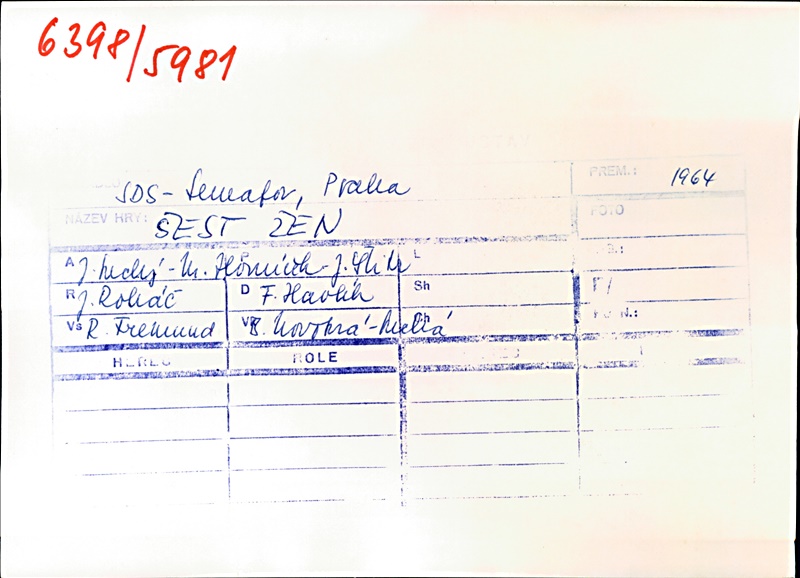 6398/5981
SDS - Semafor, Praha
PREM.: 1964
NÁZEV HRY: ŠEST ŽEN
FOTO
A J. Suchý - M. Horníček - J. Šlitr L
R J. Roháč D F. Havlík Sh
Vs R. Fremund Vk B. Novotná - Suchá Ch
HEREC ROLE